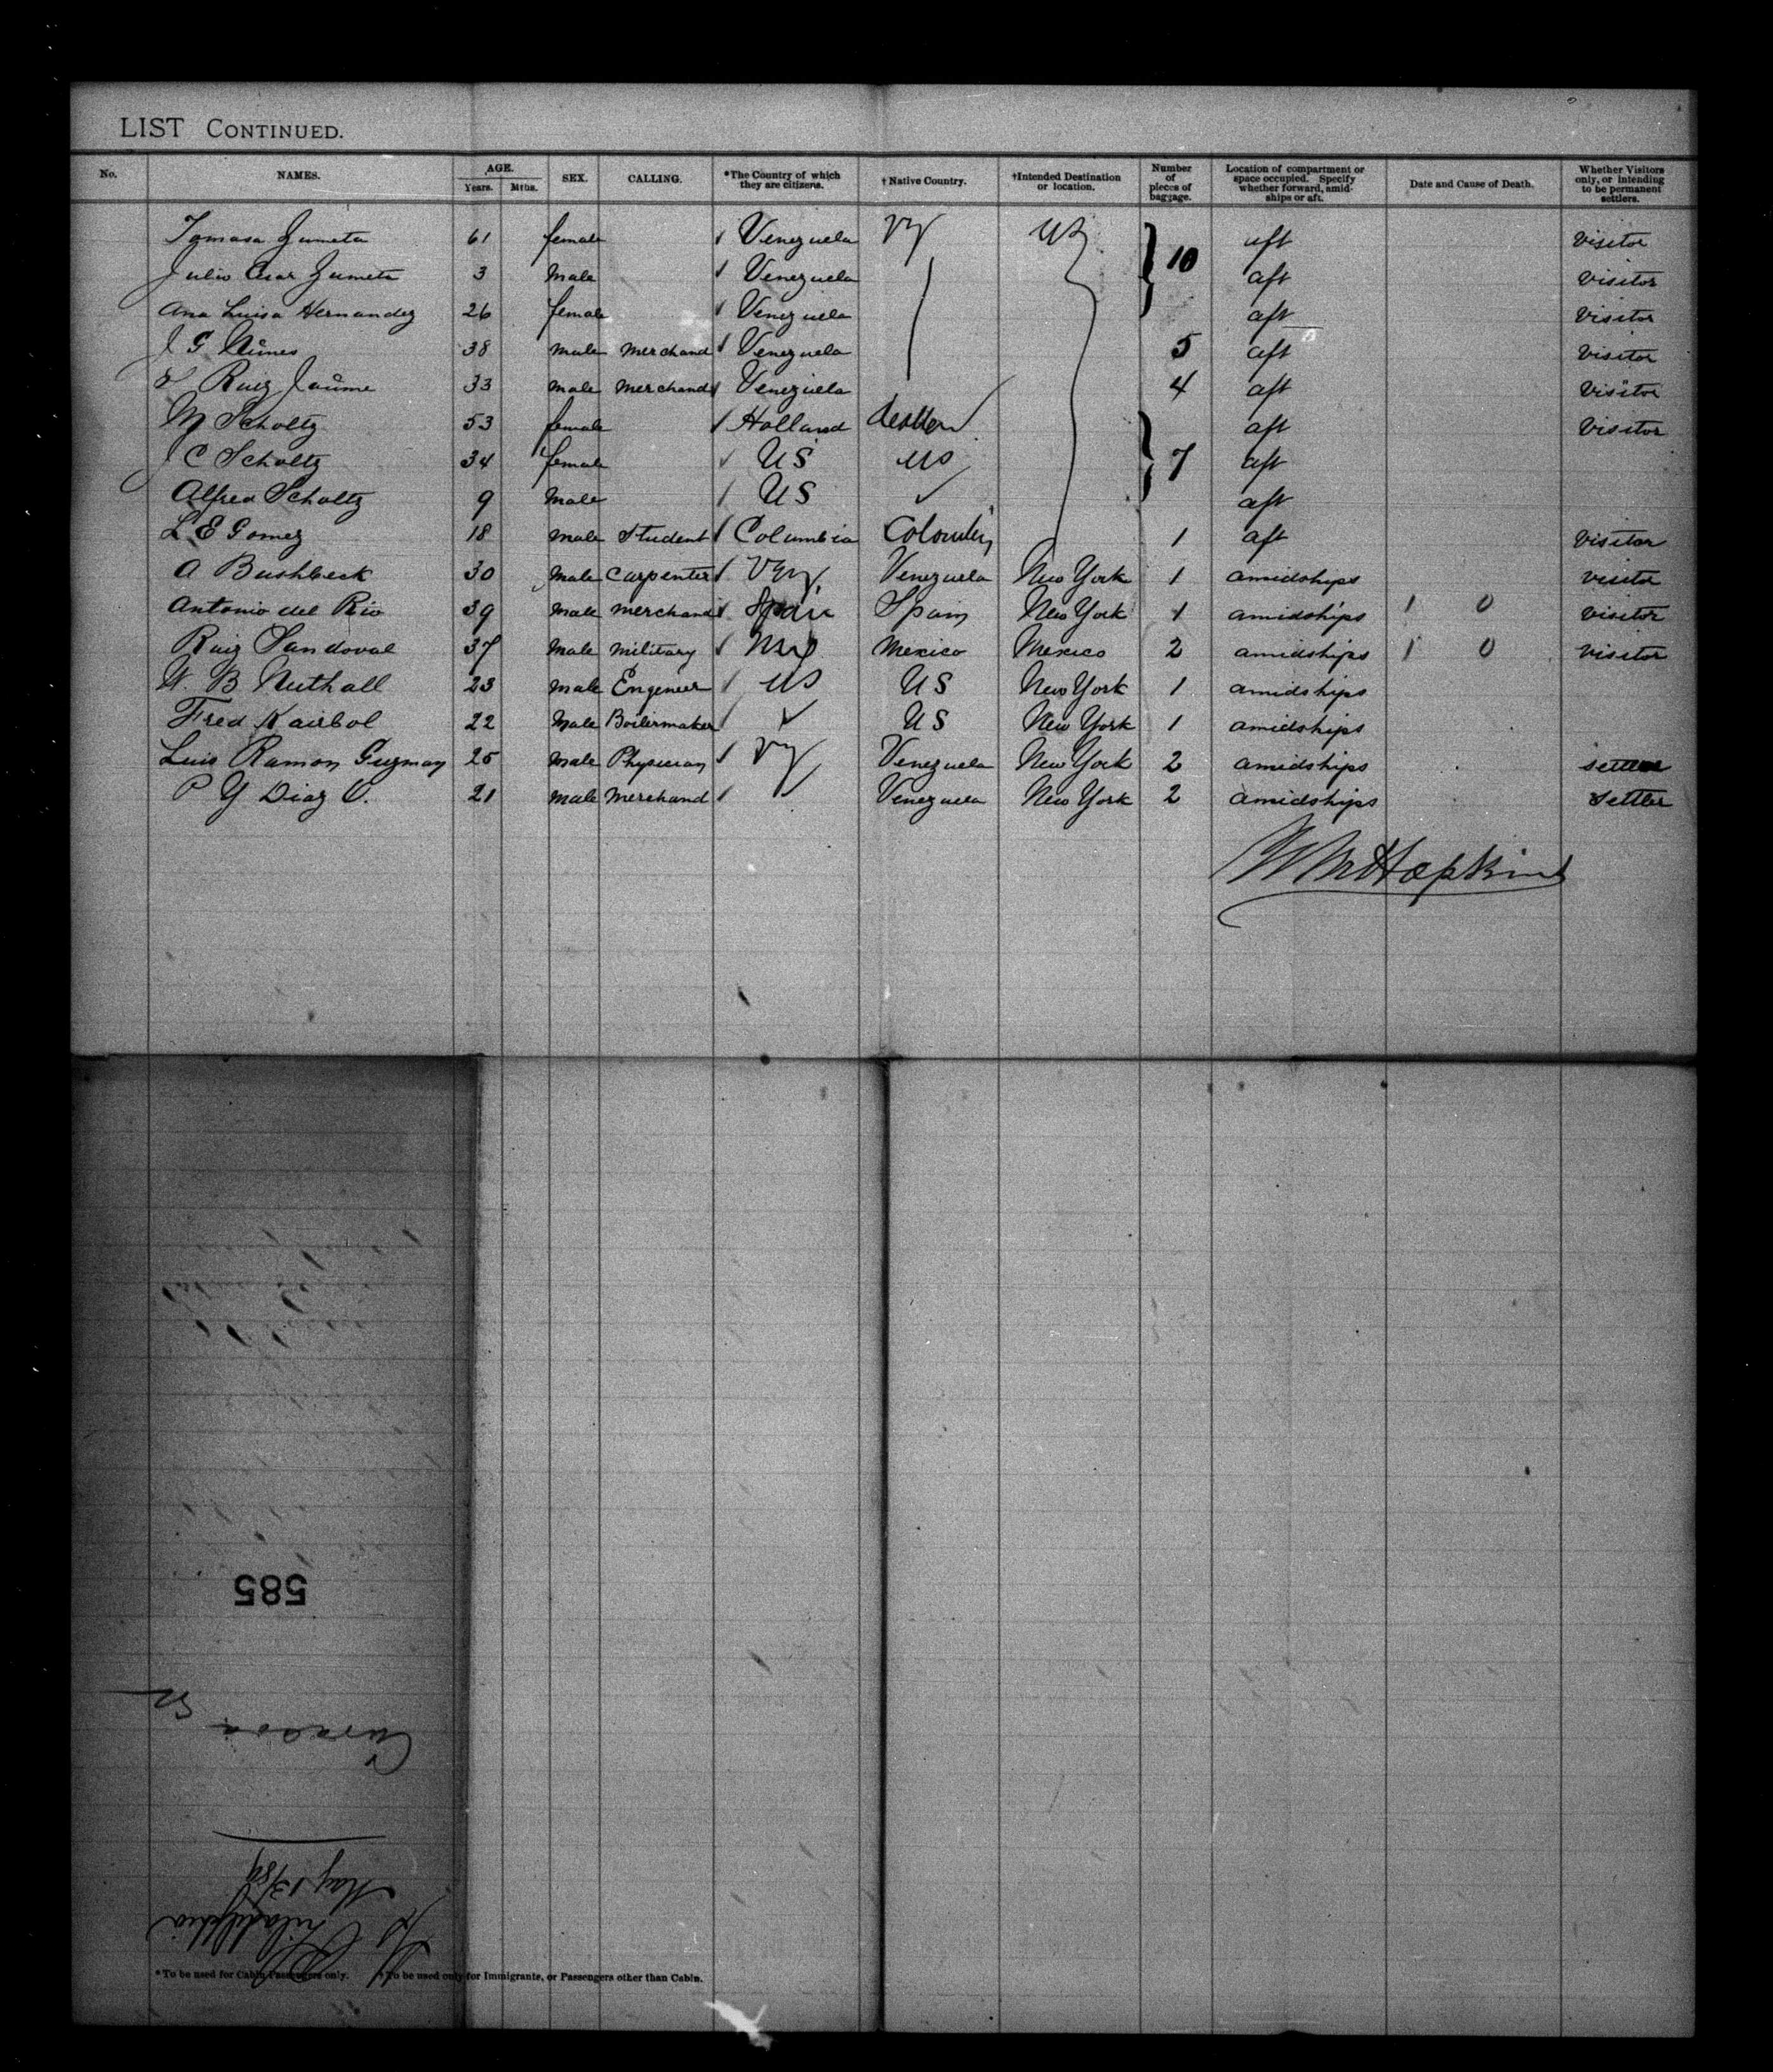 LIST CONTINUED.
No. NAMES. AGE. Years. Mths. SEX. CALLING. *The Country of which they are citizens. †Native Country. †Intended Destination or location. Number of pieces of baggage. Location of compartment or space occupied. Specify whether forward, amidships or aft. Date and Cause of Death. Whether Visitors only, or intending to be permanent settlers.
Tomasa Zumeta 61 female Venezuela Vz US 10 aft visitor
Julio Cesar Zumeta 3 male Venezuela aft visitor
Ana Luisa Hernandez 26 female Venezuela aft visitor
J G Nunes 38 male merchand Venezuela 5 aft visitor
Ruiz Jaume 33 male merchand Venezuela 4 aft visitor
M Scholtz 53 female Holland aft visitor
J C Scholtz 34 female US US 7 aft
Alfred Scholtz 9 male US aft
L E Gomez 18 male student Columbia Colombia 1 aft visitor
A Bushbeck 30 male carpenter Ven Venezuela New York 1 amidships visitor
Antonio del Rio 39 male merchand Spain Spain New York 1 amidships 1 0 visitor
Ruiz Sandoval 37 male military Mex Mexico Mexico 2 amidships 1 0 visitor
W. B Nuthall 23 male Engeneer US US New York 1 amidships
Fred Kairbol 22 male Boilermaker US New York 1 amidships
Luis Ramon Guzman 25 male Physician Vz Venezuela New York 2 amidships settler
P Y Diaz O. 21 male merchand Venezuela New York 2 amidships settler
WMHopkins
585
Curacoa
May 13/89
Philadelphia
*To be used for Cabin Passengers only. †To be used only for Immigrants, or Passengers other than Cabin.